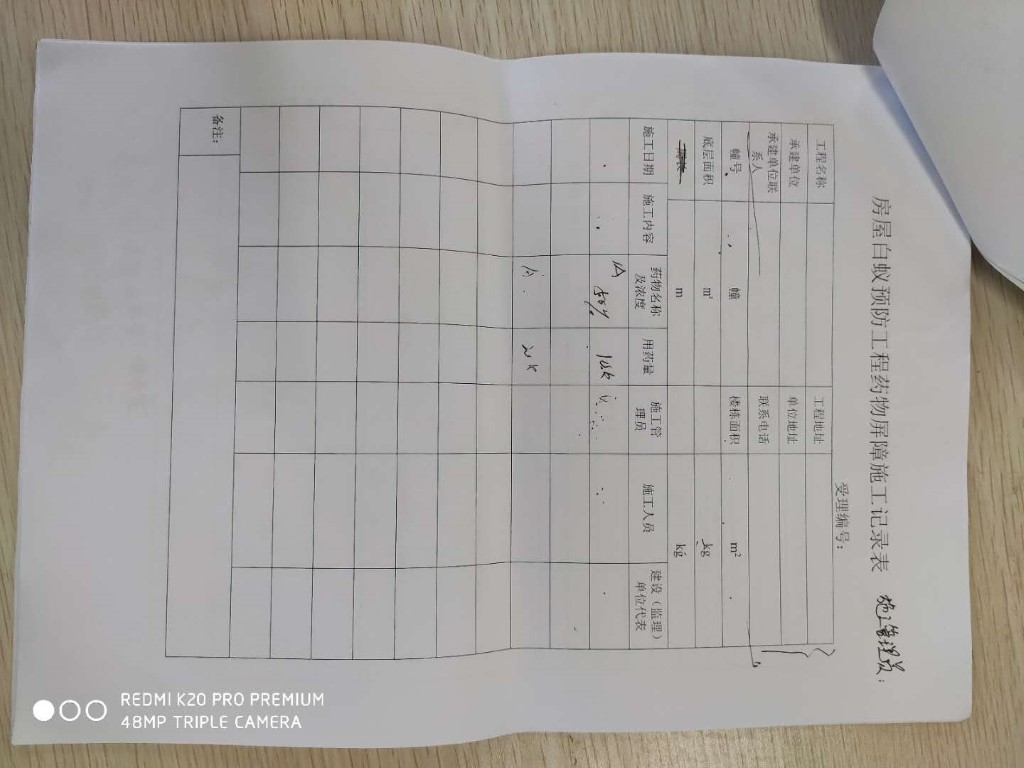 房屋白蚁预防工程药物屏障施工记录表 施工管理员:
受理编号:
工程名称 工程地址
承建单位 单位地址
承建单位联系人 联系电话
幢号 幢 楼栋面积 m²
底层面积 m² kg
m kg
施工日期 施工内容 药物名称及浓度 用药量 施工管理员 施工人员 建设（监理）单位代表
A
A
备注:
REDMI K20 PRO PREMIUM
48MP TRIPLE CAMERA